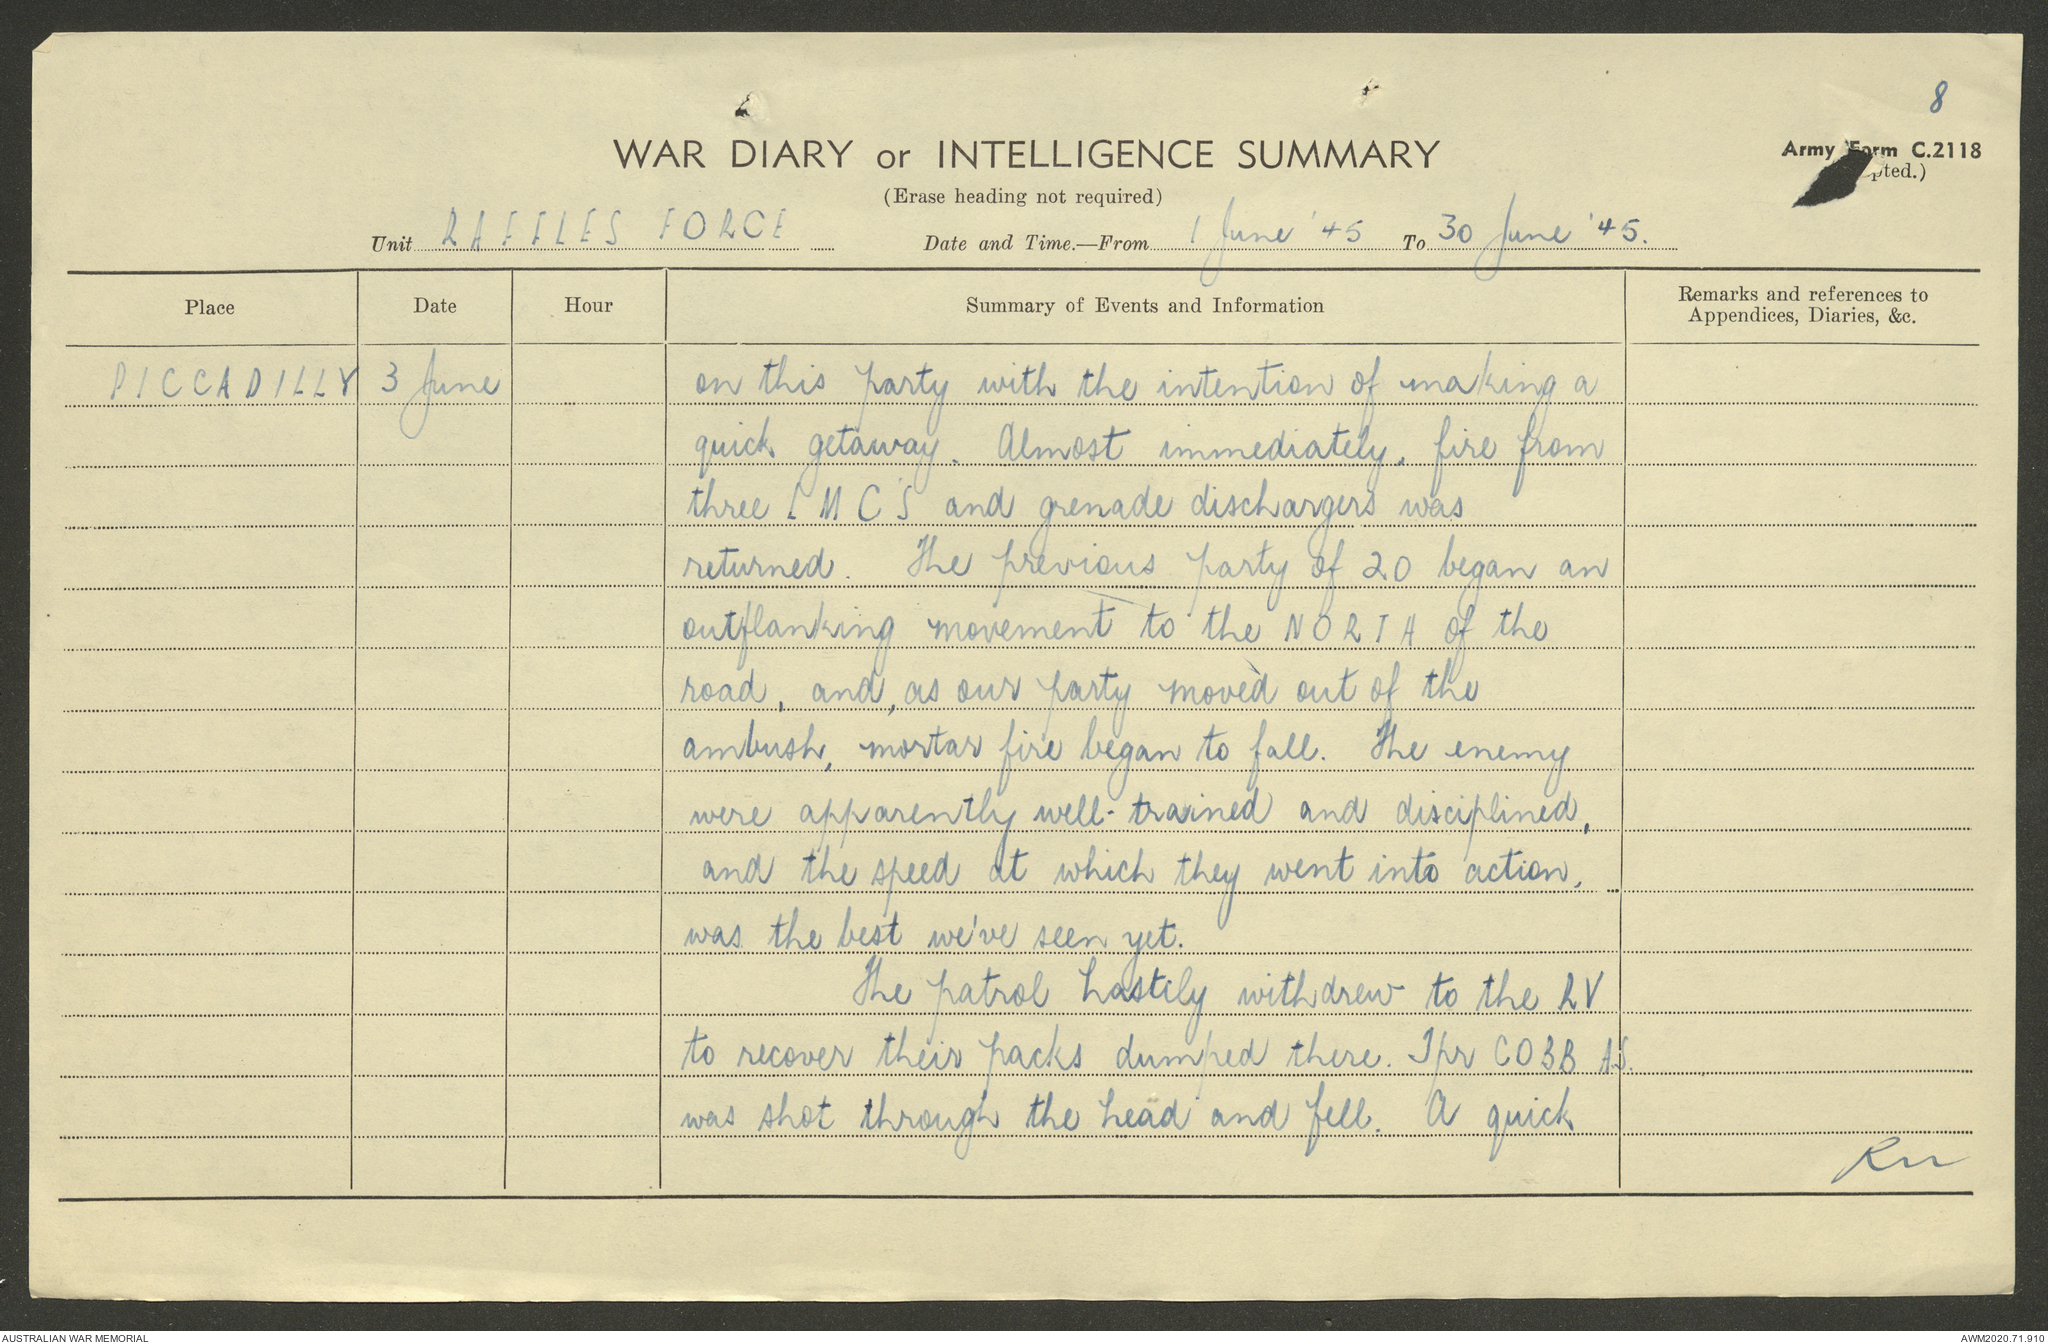 8
WAR DIARY or INTELLIGENCE SUMMARY
Army Form C.2118
pted.)
(Erase heading not required)
Unit RAFFLES FORCE Date and Time.—From 1 June '45 To 30 June '45.
Place Date Hour Summary of Events and Information Remarks and references to Appendices, Diaries, &c.
PICCADILLY 3 June on this party with the intention of making a
quick getaway. Almost immediately, fire from
three LMG'S and grenade dischargers was
returned. The previous party of 20 began an
outflanking movement to the NORTH of the
road, and, as our party moved out of the
ambush, mortar fire began to fall. The enemy
were apparently well-trained and disciplined,
and the speed at which they went into action,
was the best we've seen yet.
The patrol hastily withdrew to the RV
to recover their packs dumped there. Tpr COBB A.S.
was shot through the head and fell. A quick
AUSTRALIAN WAR MEMORIAL
AWM2020.71.910